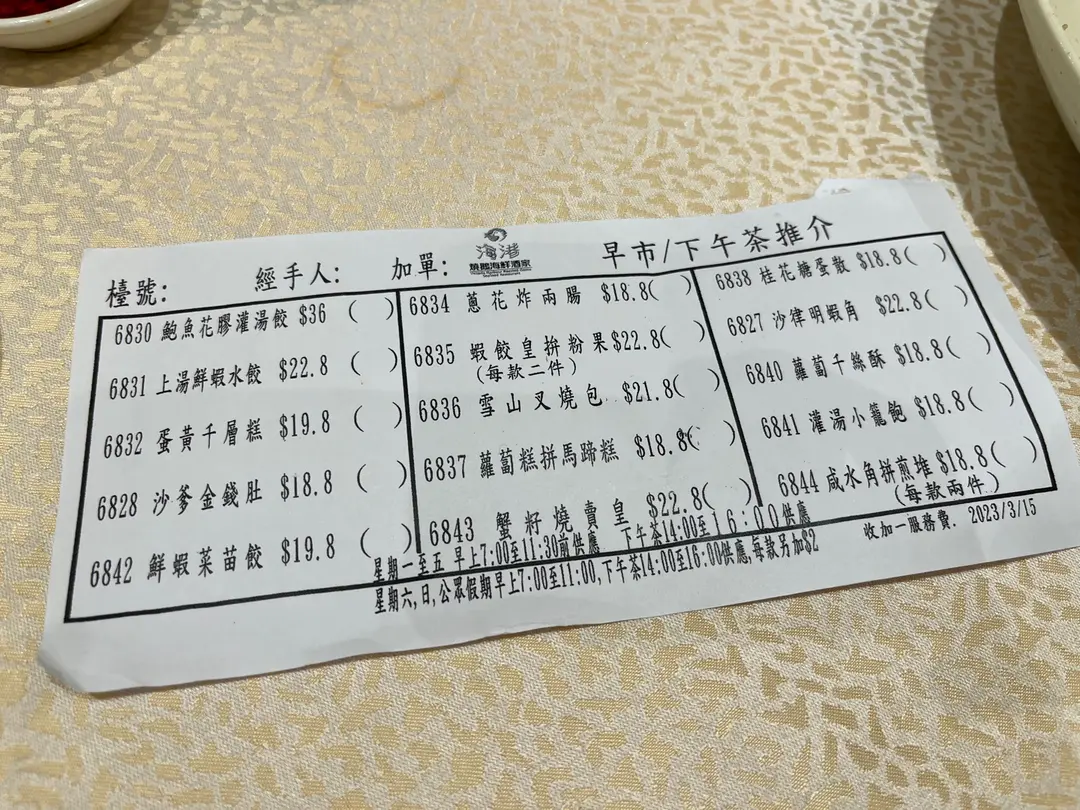 海港
燒鵝海鮮酒家
早市/下午茶推介
檯號: 經手人: 加單:
6830 鮑魚花膠灌湯餃 $36 ( )
6831 上湯鮮蝦水餃 $22.8 ( )
6832 蛋黃千層糕 $19.8 ( )
6828 沙爹金錢肚 $18.8 ( )
6842 鮮蝦菜苗餃 $19.8 ( )
6834 蔥花炸兩腸 $18.8( )
6835 蝦餃皇拚粉果$22.8( )
(每款二件)
6836 雪山叉燒包 $21.8( )
6837 蘿蔔糕拼馬蹄糕 $18.8( )
6843 蟹籽燒賣皇 $22.8( )
6838 桂花糖蛋散$18.8( )
6827 沙律明蝦角 $22.8( )
6840 蘿蔔千絲酥 $18.8( )
6841 灌湯小籠飽 $18.8( )
6844 咸水角拼煎堆$18.8( )
(每款兩件)
星期一至五 早上7:00至11:30前供應 下午茶14:00至16:00供應
星期六,日,公眾假期早上7:00至11:00,下午茶14:00至16:00供應,每款另加$2
收加一服務費. 2023/3/15